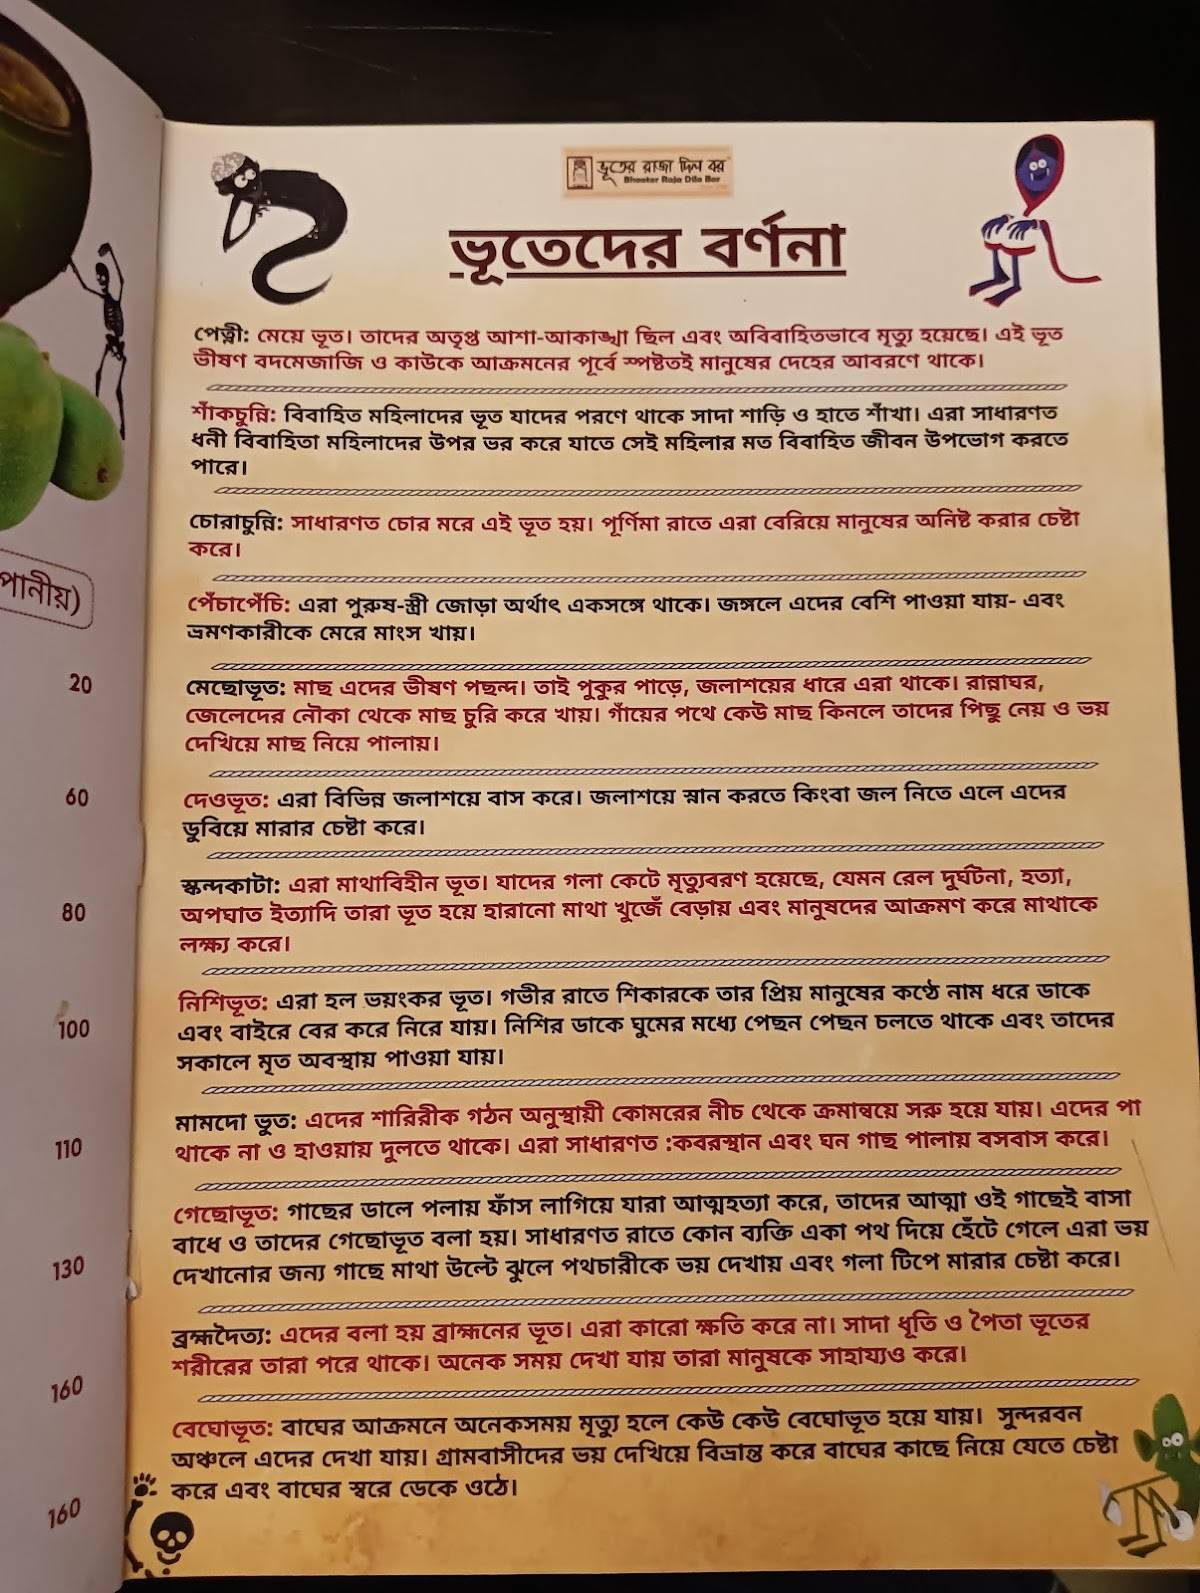 ভূতের রাজা দিল বর
Bhooter Raja Dilo Bor
ভূতেদের বর্ণনা
পেত্নী: মেয়ে ভূত। তাদের অতৃপ্ত আশা-আকাঙ্খা ছিল এবং অবিবাহিতভাবে মৃত্যু হয়েছে। এই ভূত
ভীষণ বদমেজাজি ও কাউকে আক্রমনের পূর্বে স্পষ্টতই মানুষের দেহের আবরণে থাকে।
শাঁকচুন্নি: বিবাহিত মহিলাদের ভূত যাদের পরণে থাকে সাদা শাড়ি ও হাতে শাঁখা। এরা সাধারণত
ধনী বিবাহিতা মহিলাদের উপর ভর করে যাতে সেই মহিলার মত বিবাহিত জীবন উপভোগ করতে
পারে।
চোরাচুন্নি: সাধারণত চোর মরে এই ভূত হয়। পূর্ণিমা রাতে এরা বেরিয়ে মানুষের অনিষ্ট করার চেষ্টা
করে।
পেঁচাপেঁচি: এরা পুরুষ-স্ত্রী জোড়া অর্থাৎ একসঙ্গে থাকে। জঙ্গলে এদের বেশি পাওয়া যায়- এবং
ভ্রমণকারীকে মেরে মাংস খায়।
মেছোভূত: মাছ এদের ভীষণ পছন্দ। তাই পুকুর পাড়ে, জলাশয়ের ধারে এরা থাকে। রান্নাঘর,
জেলেদের নৌকা থেকে মাছ চুরি করে খায়। গাঁয়ের পথে কেউ মাছ কিনলে তাদের পিছু নেয় ও ভয়
দেখিয়ে মাছ নিয়ে পালায়।
দেওভূত: এরা বিভিন্ন জলাশয়ে বাস করে। জলাশয়ে স্নান করতে কিংবা জল নিতে এলে এদের
ডুবিয়ে মারার চেষ্টা করে।
স্কন্দকাটা: এরা মাথাবিহীন ভূত। যাদের গলা কেটে মৃত্যুবরণ হয়েছে, যেমন রেল দুর্ঘটনা, হত্যা,
অপঘাত ইত্যাদি তারা ভূত হয়ে হারানো মাথা খুজেঁ বেড়ায় এবং মানুষদের আক্রমণ করে মাথাকে
লক্ষ্য করে।
নিশিভূত: এরা হল ভয়ংকর ভূত। গভীর রাতে শিকারকে তার প্রিয় মানুষের কণ্ঠে নাম ধরে ডাকে
এবং বাইরে বের করে নিরে যায়। নিশির ডাকে ঘুমের মধ্যে পেছন পেছন চলতে থাকে এবং তাদের
সকালে মৃত অবস্থায় পাওয়া যায়।
মামদো ভুত: এদের শারিরীক গঠন অনুস্থায়ী কোমরের নীচ থেকে ক্রমান্বয়ে সরু হয়ে যায়। এদের পা
থাকে না ও হাওয়ায় দুলতে থাকে। এরা সাধারণত :কবরস্থান এবং ঘন গাছ পালায় বসবাস করে।
গেছোভূত: গাছের ডালে পলায় ফাঁস লাগিয়ে যারা আত্মহত্যা করে, তাদের আত্মা ওই গাছেই বাসা
বাধে ও তাদের গেছোভূত বলা হয়। সাধারণত রাতে কোন ব্যক্তি একা পথ দিয়ে হেঁটে গেলে এরা ভয়
দেখানোর জন্য গাছে মাথা উল্টে ঝুলে পথচারীকে ভয় দেখায় এবং গলা টিপে মারার চেষ্টা করে।
ব্রহ্মদৈত্য: এদের বলা হয় ব্রাহ্মনের ভূত। এরা কারো ক্ষতি করে না। সাদা ধূতি ও পৈতা ভূতের
শরীরের তারা পরে থাকে। অনেক সময় দেখা যায় তারা মানুষকে সাহায্যও করে।
বেঘোভূত: বাঘের আক্রমনে অনেকসময় মৃত্যু হলে কেউ কেউ বেঘোভূত হয়ে যায়। সুন্দরবন
অঞ্চলে এদের দেখা যায়। গ্রামবাসীদের ভয় দেখিয়ে বিভ্রান্ত করে বাঘের কাছে নিয়ে যেতে চেষ্টা
করে এবং বাঘের স্বরে ডেকে ওঠে।
পানীয়)
20
60
80
100
110
130
160
160